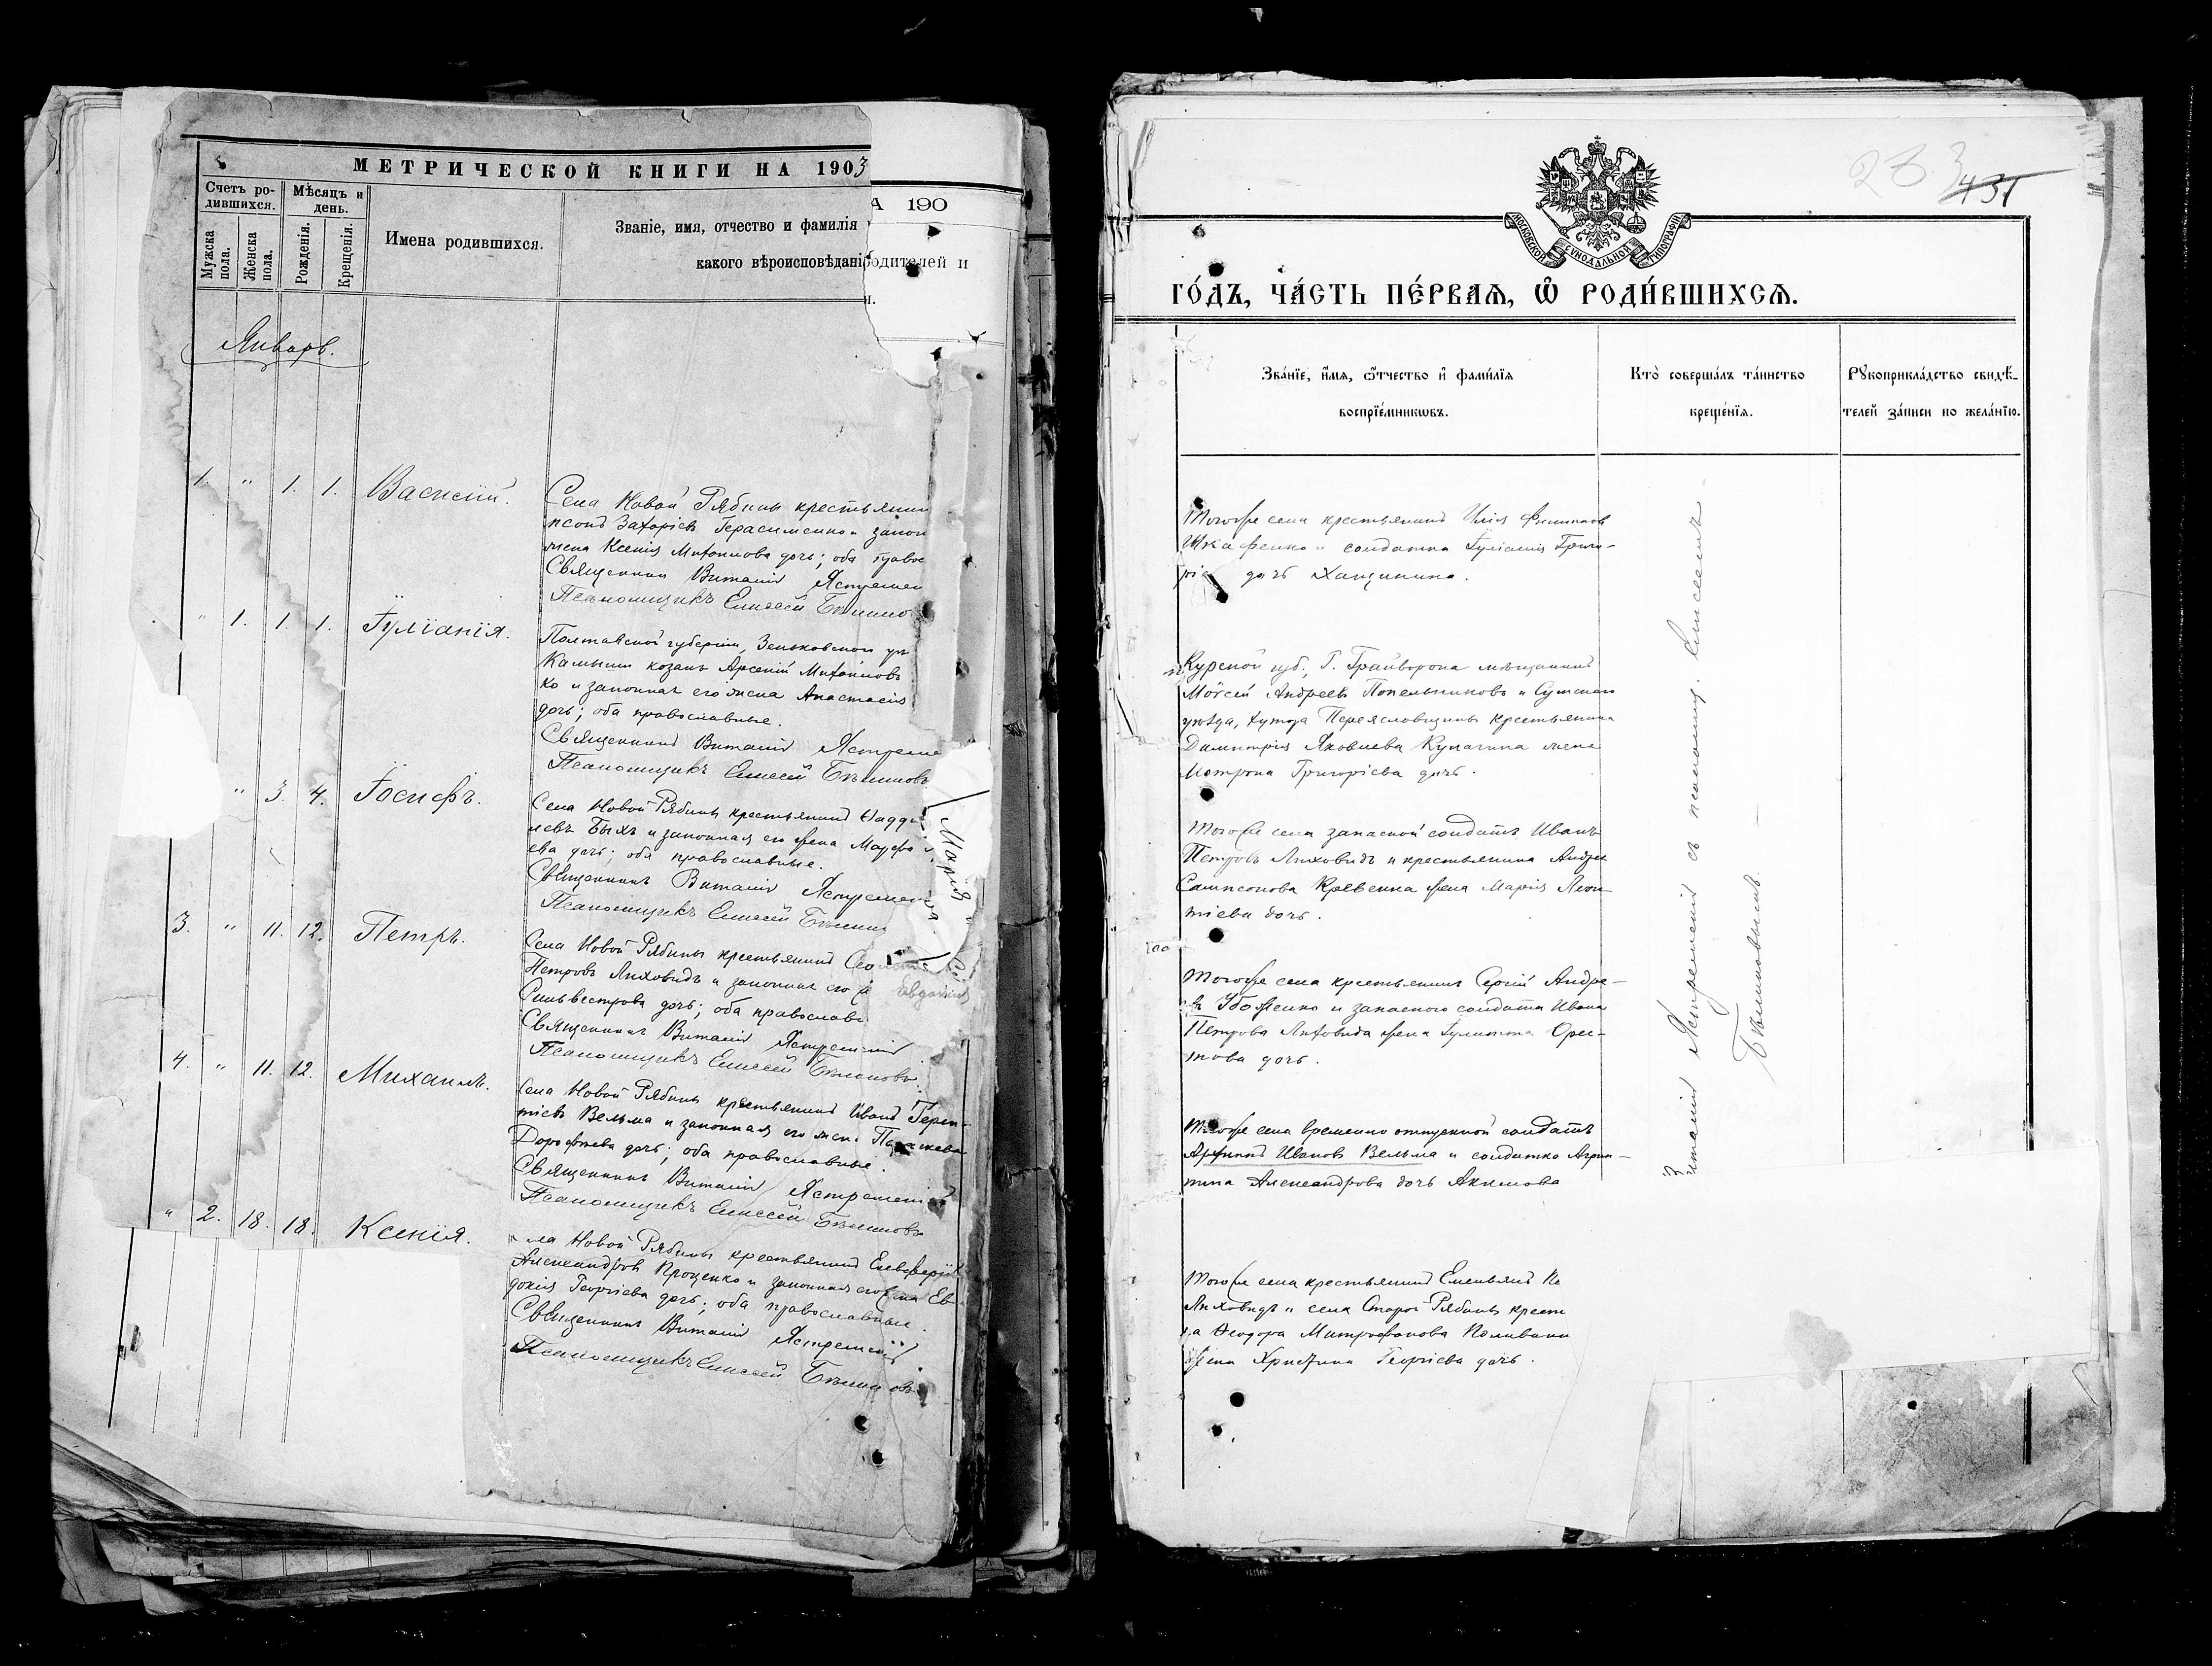 МЕТРИЧЕСКОЙ КНИГИ НА 1903
Счетъ ро-
дившихся.
Мѣсяцъ и
день.
Мужска
пола.
Женска
пола.
Рожденія.
Крещенія.
Имена родившихся.
Званіе, имя, отчество и фамилія
какого вѣроисповѣдані
А 190
родителей и
Январь.
1. " 1. 1. Василій.
Села Новой Рябины крестьянин
Захаріев Герасименко и закон
жена Ксенія Михаилова дочь; оба правос
Священникъ Виталій Ястремс
Псаломщикъ Елисей
" 1. 1. 1. Іуліанія.
Полтавской губерніи, Зеньковскаго уѣ
Камыши козакъ Арсеній Михаиловъ
ко и законная его жена Анастасія
дочь; оба православные.
Священникъ Виталій Ястремс
Псаломщикъ Елисей
" 3. 4. Іосифъ.
Села Новой Рябины крестьянинъ Ѳадд
левъ Быхъ и законная его жена Марфа
ева дочь; оба православные.
Священникъ Виталій Ястремс
Псаломщикъ Елисей
Марія
3. " 11. 12. Петръ.
Села Новой Рябины крестьянинъ
Петровъ Лиховидъ и законная его
Сильвестрова дочь; оба православн
Священникъ Виталій Ястремскій
Псаломщикъ Елисей
4. " 11. 12. Михаилъ.
Села Новой Рябины крестьянинъ Иванъ Терен-
тіевъ Вельма и законная его жена
Дороѳеева дочь; оба православные.
Священникъ Виталій Ястремскій
Псаломщикъ Елисей
" 2. 18. 18. Ксенія.
ла Новой Рябины крестьянинъ Елевферій
Александровъ Проценко и законная его жена Ев-
докія Георгіева дочь; оба православные.
Священникъ Виталій Ястремскій
Псаломщикъ Елисей
431
МОСКОВСКОЙ СѴНОДАЛЬНОЙ ТИПОГРАФІИ
ГО́ДЪ, ЧА́СТЬ ПЕ́РВАѦ, Ѽ РОДИ́ВШИХСѦ.
Зва́нїе, и҆́мѧ, ѻ҆́тчество и҆ фами́лїѧ
воспрїе́мникѡвъ.
Кто̀ соверша́лъ та́инство
креще́нїѧ.
Рꙋкоприкла́дство свидѣ́-
телей за́писи по жела́нїю.
Тогоже села крестьянинъ Илія Филиппов
и солдатка Іуліанія Григо-
ріе дочь
Курской губ., Г. Грайворона мѣщанинъ
Моѵсей Андреевъ Попельниковъ и Сумскаго
уѣзда, хутора Переясловщины крестьянина
Димитрія Яковлева Купачина жена
Матрона Григоріева дочь.
Тогоже села запасной солдатъ Иванъ
Петровъ Лиховидъ и крестьянина Андрея
Сампсонова жена Марія Леон-
тіева дочь.
Тогоже села крестьянинъ Сергій Андре-
въ Убоженко и запаснаго солдата Ивана
Петрова Лиховида жена Іулитта Орес-
това дочь.
Тогоже села временно отпускной солдатъ
Иванов Вельма и солдатка Агрип-
пина Александрова дочь Акимова
Тогоже села крестьянинъ Емельянъ Пе
Лиховидъ и села Старой Рябины крестьян
Ѳеодора Митрофанова Поливан
жена Христина Георгіева дочь.
Виталій Ястремскій съ псаломщ. Елисеемъ